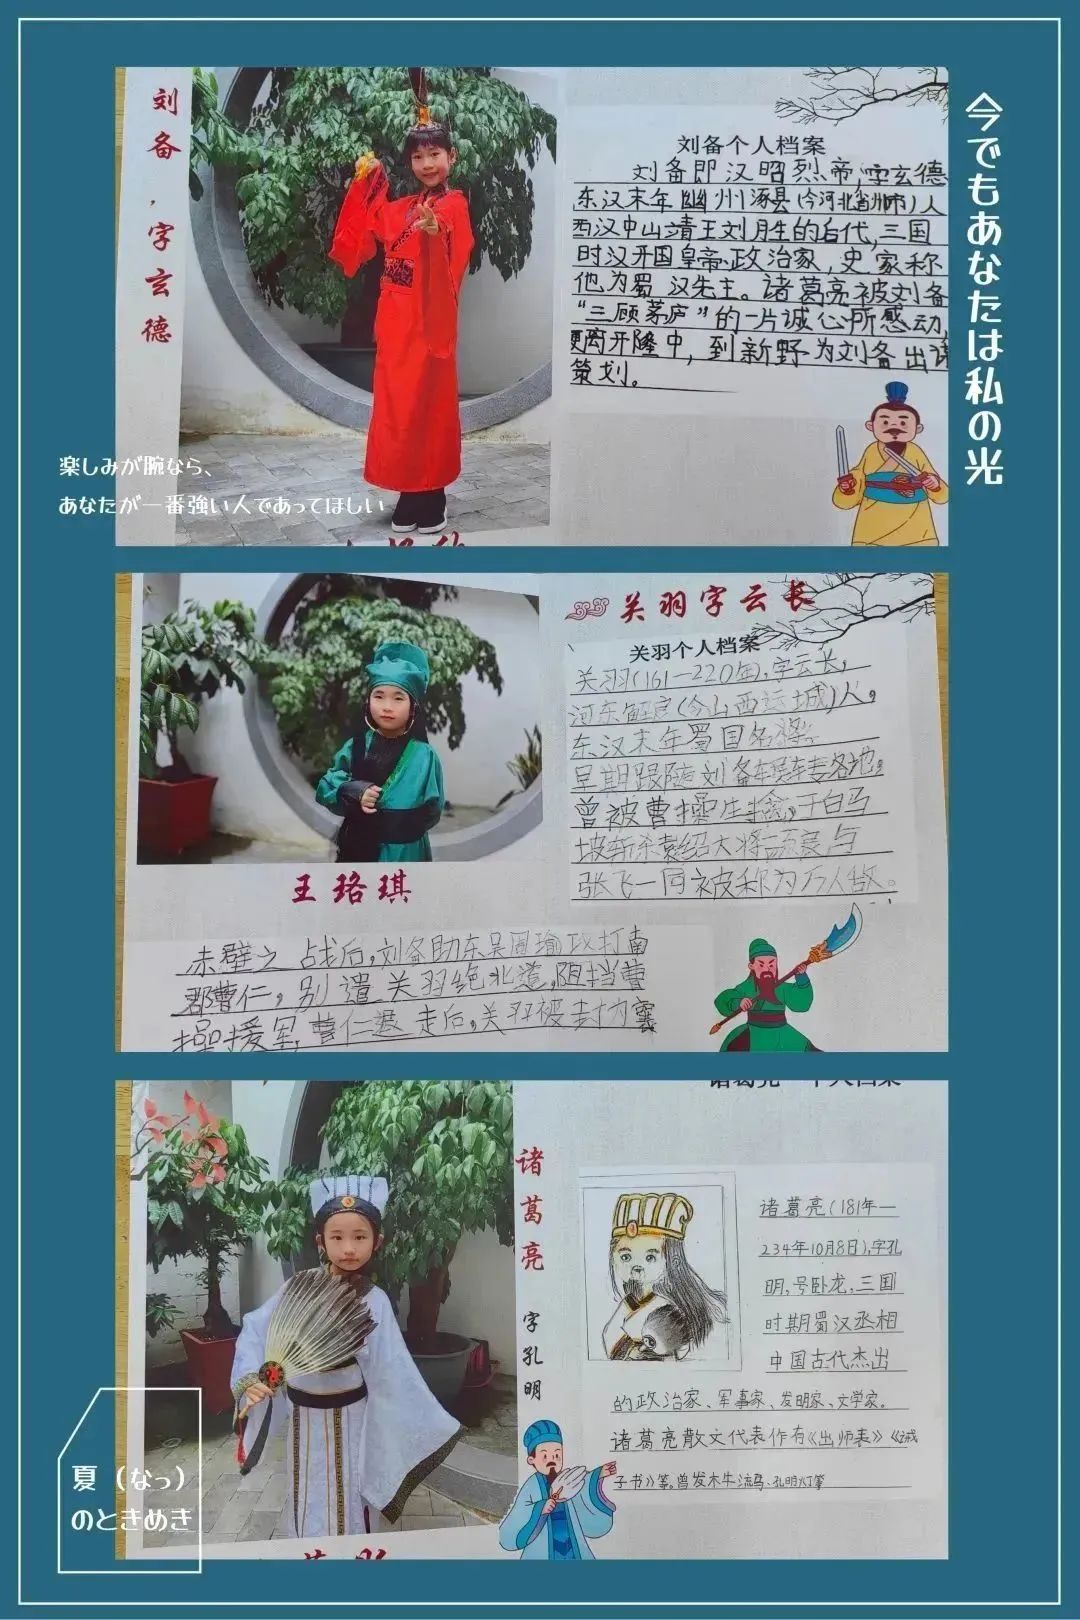 今でもあなたは私の光
刘备,字玄德
刘备个人档案
刘备即汉昭烈帝,字玄德
东汉末年幽州涿县(今河北省
西汉中山靖王刘胜的后代,三国
时汉开国皇帝、政治家,史家称
他为蜀汉先主。诸葛亮被刘备
“三顾茅庐”的一片诚心所感动,
便离开隆中,到新野为刘备出谋
策划。
楽しみが腕なら、
あなたが一番強い人であってほしい
关羽字云长
关羽个人档案
关羽(161—220年),字云长,
河东解良(今山西运城)人,
东汉末年蜀国名将。
早期跟随刘备辗转各地,
曾被曹操生擒,于白马
坡斩杀袁绍大将颜良,与
张飞一同被称为万人敌。
王珞琪
赤壁之战后,刘备助东吴周瑜攻打南
郡曹仁,别遣关羽绝北道,阻挡曹
操援军,曹仁退走后,关羽被封为襄
诸葛亮 个人档案
诸葛亮 字孔明
诸葛亮(181年—
234年10月8日),字孔
明,号卧龙,三国
时期蜀汉丞相
中国古代杰出
的政治家、军事家、发明家、文学家。
诸葛亮散文代表作有《出师表》《诫
子书》等。曾发木牛流马、孔明灯等
夏(なっ)
のときめき